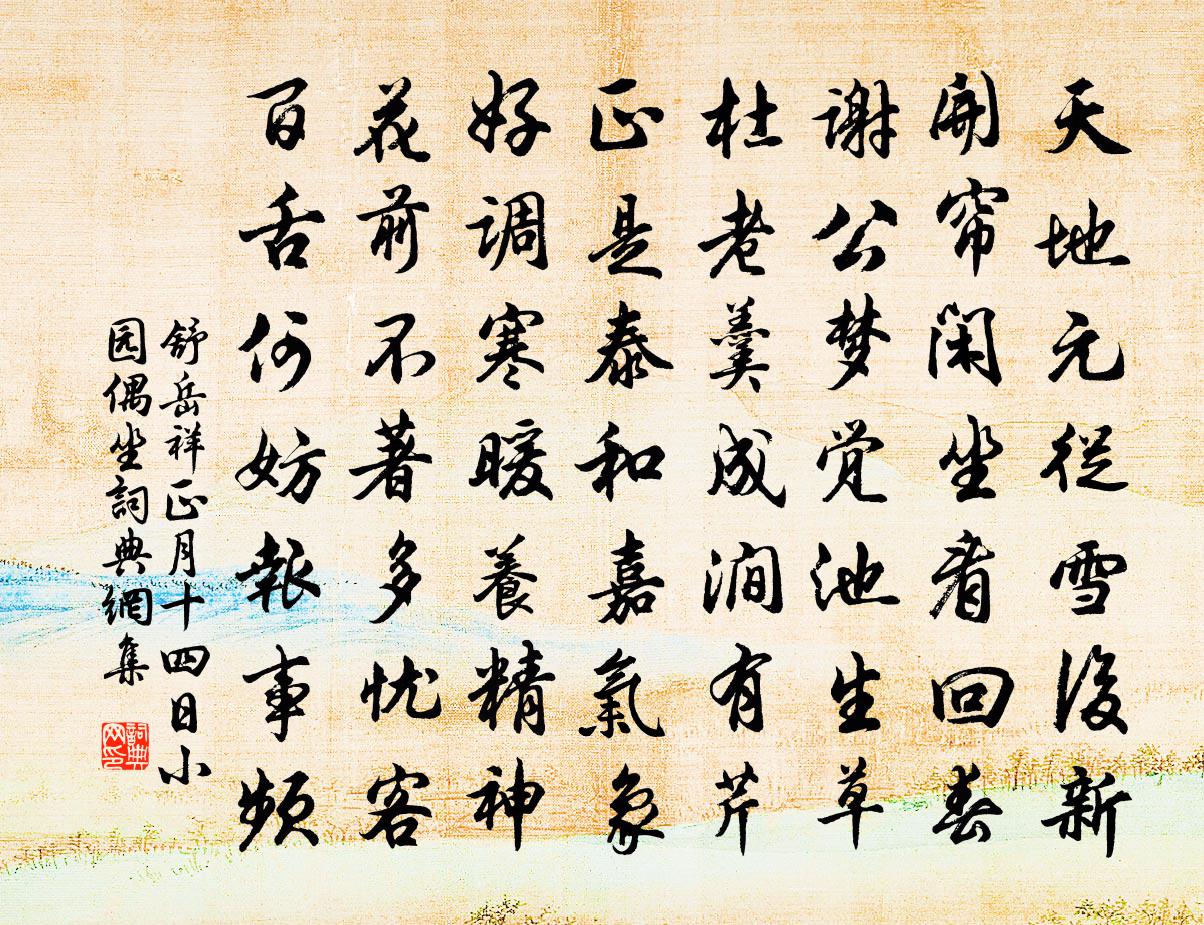 天地元从雪后新
開帘闲坐看回春
谢公梦觉池生草
杜老羹成涧有芹
正是泰和嘉氣象
好调寒暖養精神
花前不著多忧客
百舌何妨報事頻
舒岳祥正月十四日小
园偶坐詞典網集
詞典网印